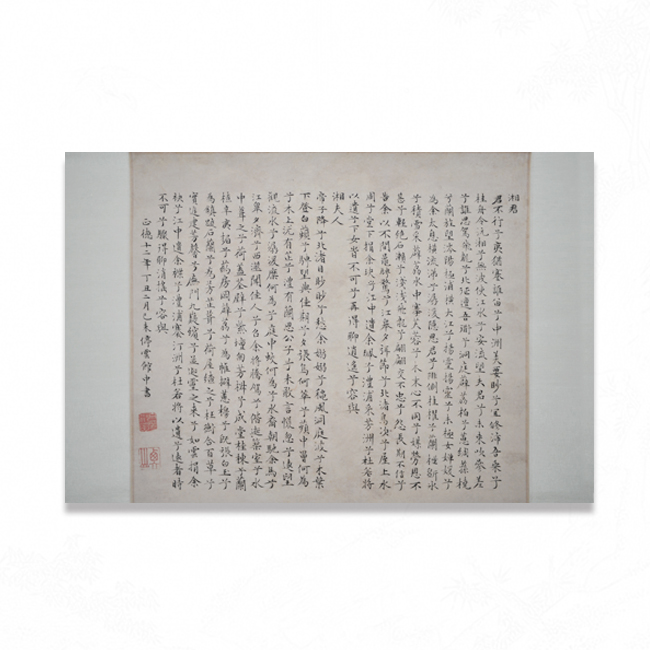 湘君
君不行兮夷猶蹇誰留兮中洲美要眇兮宜修沛吾乘兮
桂舟令沅湘兮無波使江水兮安流望夫君兮未來吹參差
兮誰思駕飛龍兮北征邅吾道兮洞庭薜荔柏兮蕙綢蓀橈
兮蘭旌望涔陽兮極浦橫大江兮揚靈揚靈兮未極女嬋媛兮
為余太息橫流涕兮潺湲隱思君兮陫側桂櫂兮蘭枻斲冰
兮積雪采薜荔兮水中搴芙蓉兮木末心不同兮媒勞恩不
甚兮輕絕石瀨兮淺淺飛龍兮翩翩交不忠兮怨長期不信兮
告余以不閒鼂騁騖兮江皋夕弭節兮北渚鳥次兮屋上水
周兮堂下捐余玦兮江中遺余佩兮澧浦采芳洲兮杜若將
以遺兮下女時不可兮再得聊逍遙兮容與
湘夫人
帝子降兮北渚目眇眇兮愁余嫋嫋兮秋風洞庭波兮木葉
下登白薠兮騁望與佳期兮夕張鳥何萃兮蘋中罾何為
兮木上沅有芷兮澧有蘭思公子兮未敢言慌忽兮遠望
觀流水兮潺湲麋何為兮庭中蛟何為兮水裔朝馳余馬兮
江皋夕濟兮西澨聞佳人兮召余將騰駕兮偕逝築室兮水
中葺之兮荷蓋荃壁兮紫壇匊芳椒兮成堂桂棟兮蘭
橑辛夷楣兮葯房罔薜荔兮為帷擗蕙櫋兮既張白玉兮
為鎮疏石蘭兮為芳芷葺兮荷屋繚之兮杜衡合百草兮
實庭建芳馨兮廡門九嶷繽兮並迎靈之來兮如雲捐余
袂兮江中遺余褋兮澧浦搴汀洲兮杜若將以遺兮遠者時
不可兮驟得聊逍遙兮容與
正德十二年丁丑二月己未停雲館中書